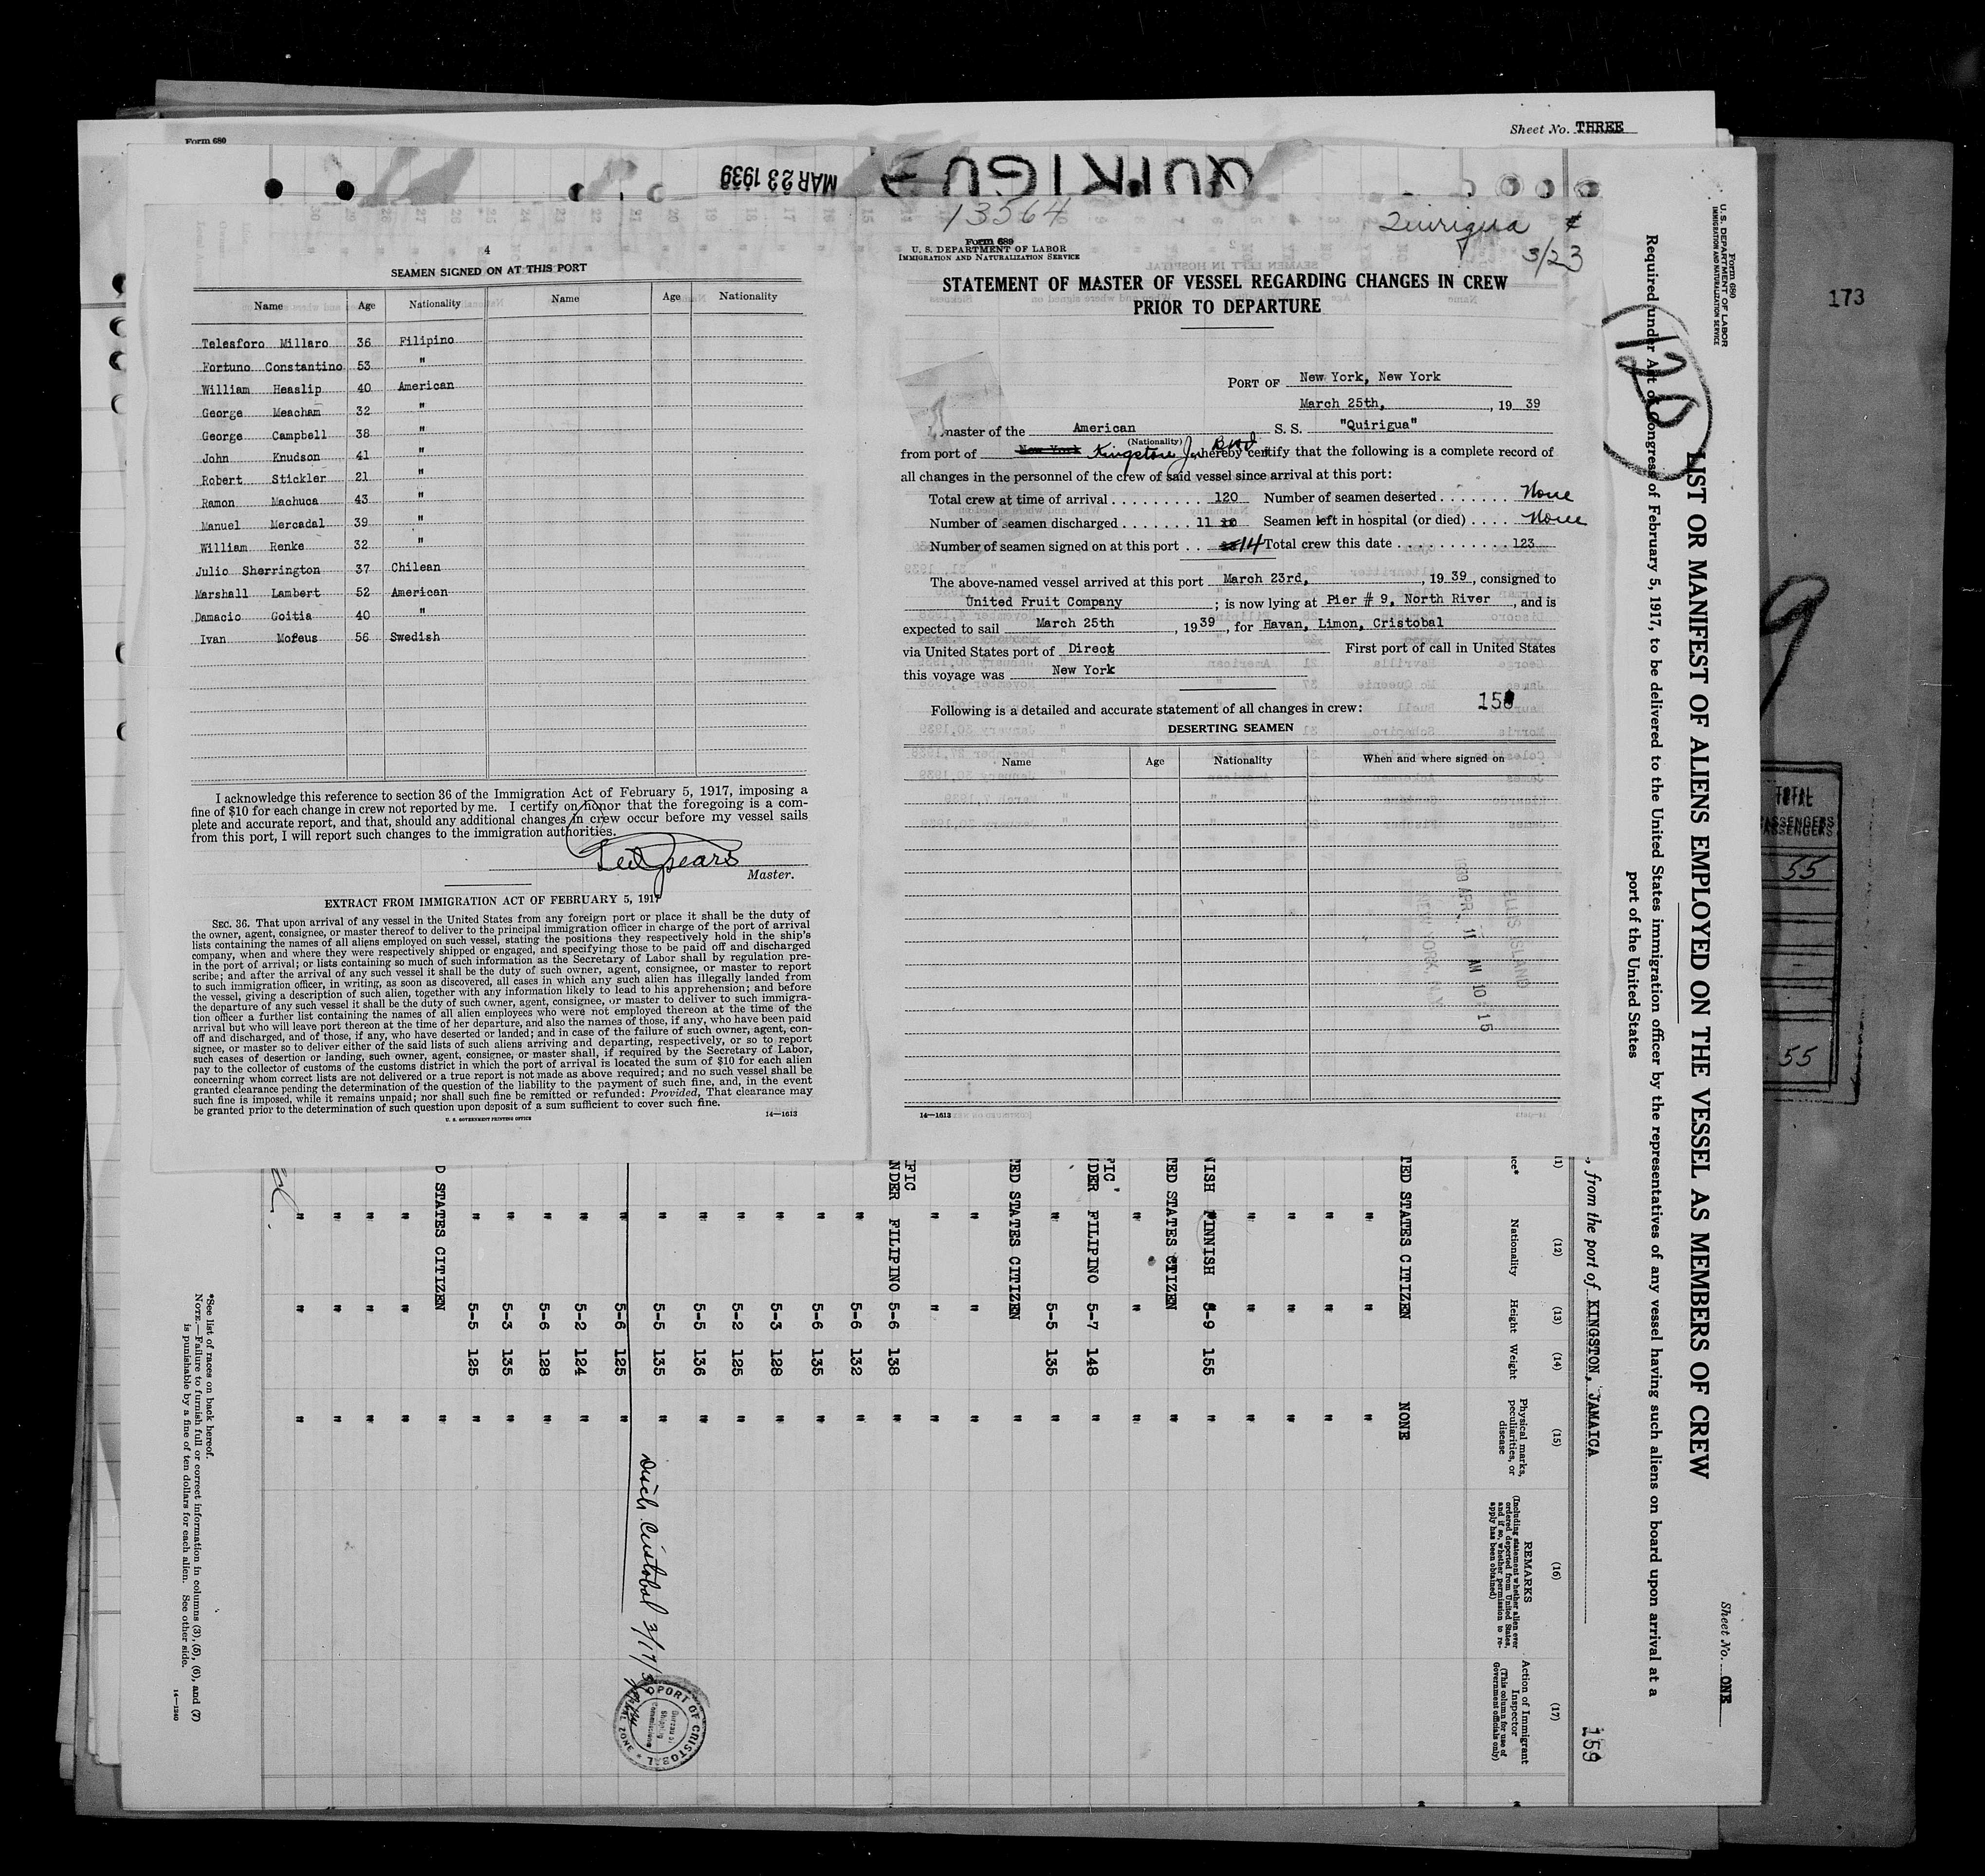 Form 680
Sheet No. THREE
MAR 23 1939
QUIRIGUA
4
SEAMEN SIGNED ON AT THIS PORT
Name Age Nationality Name Age Nationality
Telesforo Millaro 36 Filipino
Fortuno Constantino 53 "
William Heaslip 40 American
George Meacham 32 "
George Campbell 38 "
John Knudson 41 "
Robert Stickler 21 "
Ramon Machuca 43 "
Manuel Mercadal 39 "
William Renke 32 "
Julio Sherrington 37 Chilean
Marshall Lambert 52 American
Damacio Goitia 40 "
Ivan Mofeus 56 Swedish
I acknowledge this reference to section 36 of the Immigration Act of February 5, 1917, imposing a
fine of $10 for each change in crew not reported by me. I certify on honor that the foregoing is a com-
plete and accurate report, and that, should any additional changes in crew occur before my vessel sails
from this port, I will report such changes to the immigration authorities.
Master.
EXTRACT FROM IMMIGRATION ACT OF FEBRUARY 5, 1917
SEC. 36. That upon arrival of any vessel in the United States from any foreign port or place it shall be the duty of
the owner, agent, consignee, or master thereof to deliver to the principal immigration officer in charge of the port of arrival
lists containing the names of all aliens employed on such vessel, stating the positions they respectively hold in the ship's
company, when and where they were respectively shipped or engaged, and specifying those to be paid off and discharged
in the port of arrival; or lists containing so much of such information as the Secretary of Labor shall by regulation pre-
scribe; and after the arrival of any such vessel it shall be the duty of such owner, agent, consignee, or master to report
to such immigration officer, in writing, as soon as discovered, all cases in which any such alien has illegally landed from
the vessel, giving a description of such alien, together with any information likely to lead to his apprehension; and before
the departure of any such vessel it shall be the duty of such owner, agent, consignee, or master to deliver to such immigra-
tion officer a further list containing the names of all alien employees who were not employed thereon at the time of the
arrival but who will leave port thereon at the time of her departure, and also the names of those, if any, who have been paid
off and discharged, and of those, if any, who have deserted or landed; and in case of the failure of such owner, agent, con-
signee, or master so to deliver either of the said lists of such aliens arriving and departing, respectively, or so to report
such cases of desertion or landing, such owner, agent, consignee, or master shall, if required by the Secretary of Labor,
pay to the collector of customs of the customs district in which the port of arrival is located the sum of $10 for each alien
concerning whom correct lists are not delivered or a true report is not made as above required; and no such vessel shall be
granted clearance pending the determination of the question of the liability to the payment of such fine, and, in the event
such fine is imposed, while it remains unpaid; nor shall such fine be remitted or refunded: Provided, That clearance may
be granted prior to the determination of such question upon deposit of a sum sufficient to cover such fine.
U. S. GOVERNMENT PRINTING OFFICE 14—1613
13564
Quirigua
3/23
Form 689
U. S. DEPARTMENT OF LABOR
IMMIGRATION AND NATURALIZATION SERVICE
STATEMENT OF MASTER OF VESSEL REGARDING CHANGES IN CREW
PRIOR TO DEPARTURE
PORT OF New York, New York
March 25th, , 19 39
master of the American S. S. "Quirigua"
(Nationality)
from port of New York Kingston Ja hereby certify that the following is a complete record of
all changes in the personnel of the crew of said vessel since arrival at this port:
Total crew at time of arrival 120 Number of seamen deserted None
Number of seamen discharged 11 10 Seamen left in hospital (or died) None
Number of seamen signed on at this port 14 Total crew this date 123
The above-named vessel arrived at this port March 23rd, , 19 39, consigned to
United Fruit Company ; is now lying at Pier # 9, North River , and is
expected to sail March 25th , 19 39, for Havan, Limon, Cristobal
via United States port of Direct First port of call in United States
this voyage was New York
158
Following is a detailed and accurate statement of all changes in crew:
DESERTING SEAMEN
Name Age Nationality When and where signed on
ELLIS ISLAND
1939 APR 11 AM 10 15
NEW YORK, N.Y.
14—1613
173
TOTAL
PASSENGERS
55
55
Form 680
U. S. DEPARTMENT OF LABOR
IMMIGRATION AND NATURALIZATION SERVICE
120
LIST OR MANIFEST OF ALIENS EMPLOYED ON THE VESSEL AS MEMBERS OF CREW
Sheet No. ONE
Required under Act of Congress of February 5, 1917, to be delivered to the United States immigration officer by the representatives of any vessel having such aliens on board upon arrival at a
port of the United States
, from the port of KINGSTON, JAMAICA
159
(12) (13) (14) (15) (16) (17)
Nationality Height Weight Physical marks, peculiarities, or disease
REMARKS
(Including statement whether alien ever ordered deported from United States, and if so, whether permission to re-apply has been obtained)
Action of Immigrant Inspector
(This column for use of Government officials only)
TED STATES CITIZEN NONE
" "
" "
" "
" "
NISH FINNISH 5-9 155 "
TED STATES CITIZEN "
" "
FIC
NDER FILIPINO 5-7 148 "
" 5-5 135 "
TED STATES CITIZEN "
" " "
" " "
FIC
NDER FILIPINO 5-6 138 "
" 5-6 132 "
" 5-6 135 "
" 5-3 128 "
" 5-2 125 "
" 5-5 136 "
" 5-5 135 "
" 5-6 125 "
" 5-2 124 "
" 5-6 128 "
" 5-3 135 "
" 5-5 125 "
D STATES CITIZEN "
" " "
" " "
" " "
" " "
Disch. Cristobal 3/17/3
PORT OF CRISTOBAL
CANAL ZONE
*See list of races on back hereof.
NOTE.—Failure to furnish full or correct information in columns (3), (5), (6), and (7)
is punishable by a fine of ten dollars for each alien. See other side.
14—1240